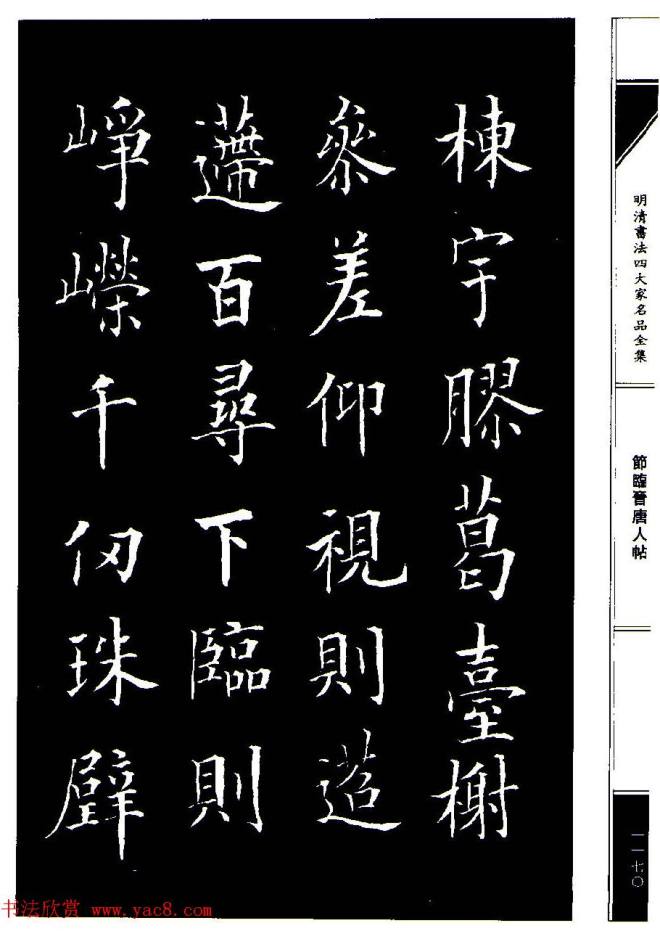 棟宇膠葛臺榭
參差仰視則迢
遰百尋下臨則
崢嶸千仞珠壁
明清書法四大家名品全集
節臨晉唐人帖
一一七〇
书法欣赏 www.yac8.com